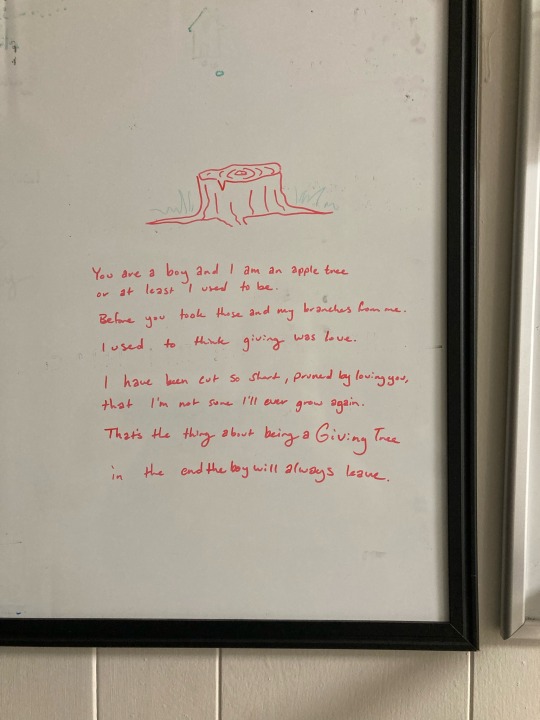 You are a boy and I am an apple tree
or at least I used to be.
Before you took those and my branches from me.
I used to think giving was love.
I have been cut so short, pruned by loving you,
that I'm not sure I'll ever grow again.
That's the thing about being a Giving Tree
in the end the boy will always leave.